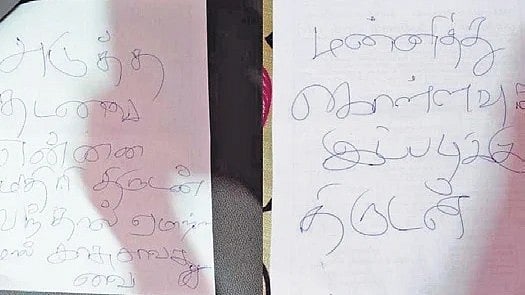 அடுத்த
தடவை
என்னை
மதிரி திருடன்
வந்தால் ஏமாற
மல் காசாவது
வை
மன்னித்து
கொள்ளவும்
இப்படிக்கு
திருடன்